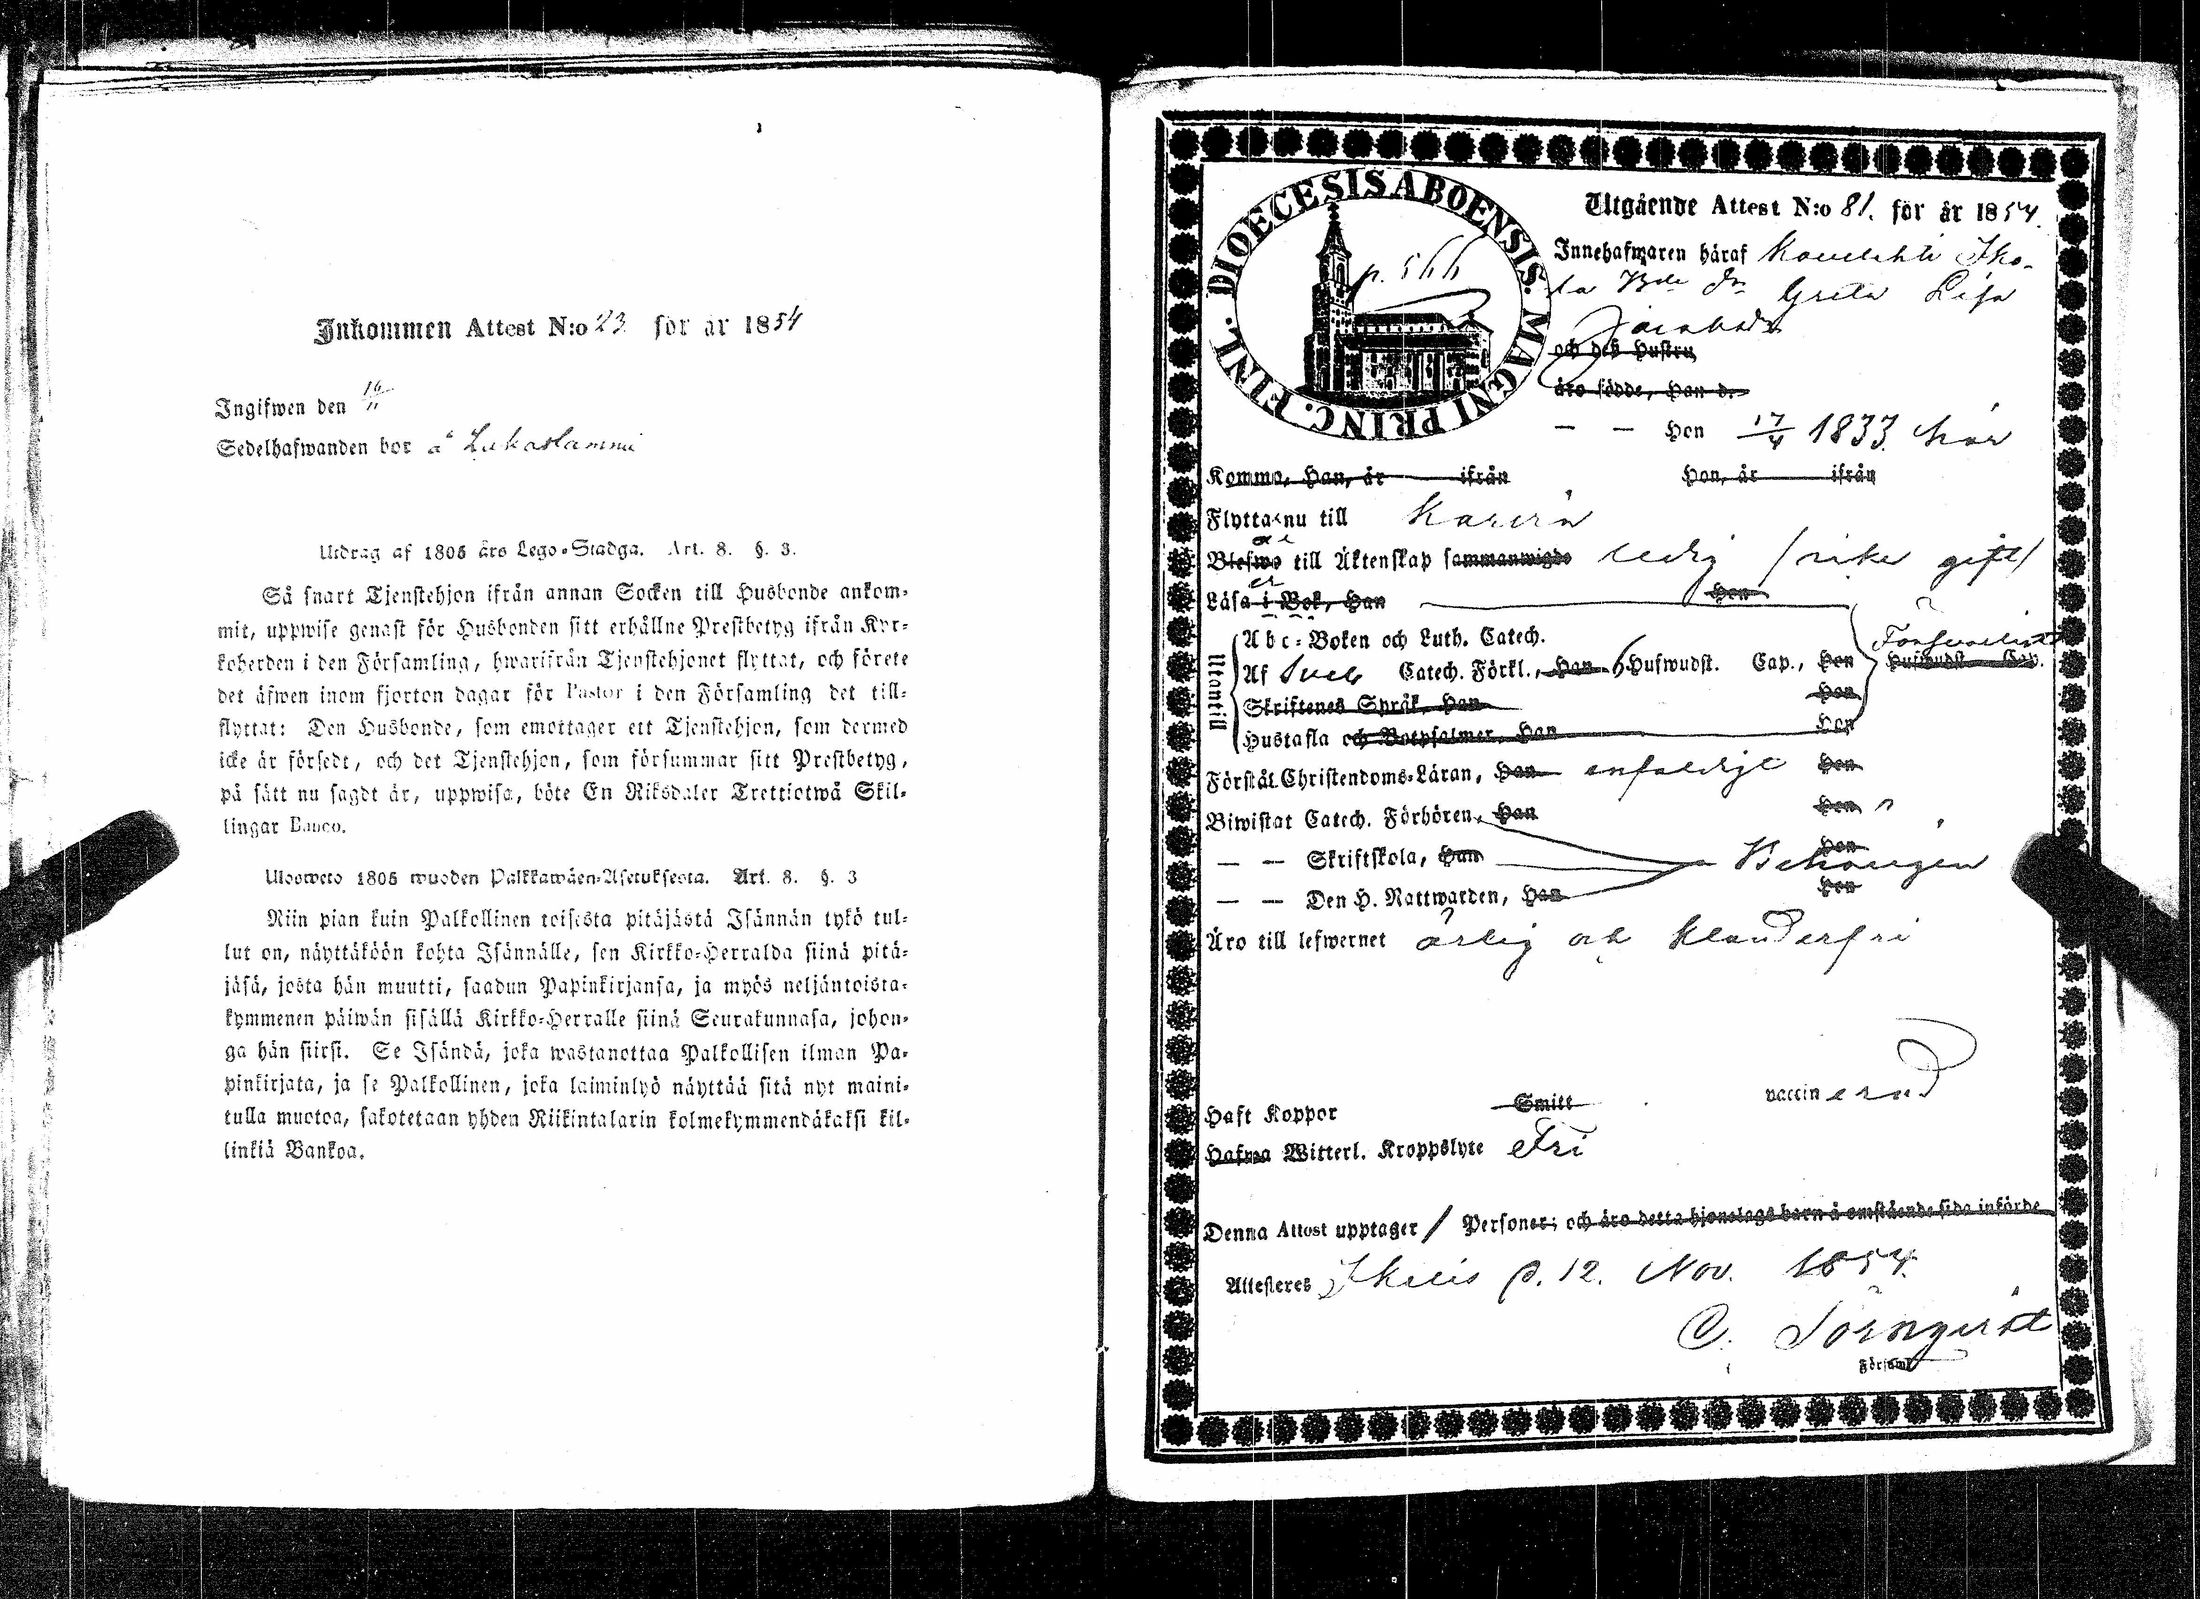 Inkommen Attest N:o 23 för år 1854
Ingifwen den 16/11
Sedelhafwanden bor å
Utdrag af 1805 års Lego-Stadga. Art. 8. §. 3.
Så snart Tjenstehjon ifrån annan Socken till Husbonde ankom-
mit, uppwise genast för Husbonden sitt erhållne Prestbetyg ifrån Kyr-
koherden i den Församling, hwarifrån Tjenstehjonet flyttat, och förete
det äfwen inom fjorton dagar för Pastor i den Församling det till-
flyttat: Den Husbonde, som emottager ett Tjenstehjon, som dermed
icke är försedt, och det Tjenstehjon, som försummar sitt Prestbetyg,
på sätt nu sagdt är, uppwisa, böte En Riksdaler Trettiotwå Skil-
lingar Banco.
Ulosweto 1805 wuoden Palkkawäen-Asetuksesta. Art. 8. §. 3
Niin pian kuin Palkollinen toisesta pitäjästä Isännän tykö tul-
lut on, näyttäköön kohta Isännälle, sen Kirkko-Herralda siinä pitä-
jäsä, josta hän muutti, saadun Papinkirjansa, ja myös neljäntoista-
kymmenen päiwän sisällä Kirkko-Herralle siinä Seurakunnasa, johon-
ga hän siirsi. Se Isändä, joka wastanottaa Palkollisen ilman Pa-
pinkirjata, ja se Palkollinen, joka laiminlyö näyttää sitä nyt maini-
tulla muotoa, sakotetaan yhden Riikintalarin kolmekymmendäkaksi kil-
linkiä Bankoa.
DIOECESIS ABOENSIS. MAGNI PRINC. FINL.
p. 566
Utgående Attest N:o 81. för år 1854.
Innehafwaren häraf
Greta Lisa
och des Hustru
äro födde, Han d.
— — Hon 17/4 1833 här
Komma, Han, år ifrån Hon, år ifrån
Flytta nu till
Blefwo till Äktenskap sammanwigde ledig / icke gift /
Läsa i Bok, Han Hon
Utantill
Abc-Boken och Luth. Catech.
Af Sveb Catech. Förkl., Han 6 Hufwudst. Cap., Hon Hufwudst. Cap.
Skriftenes Språk, Han Hon
Hustafla och Botpsalmer, Han Hon
Förstå Christendoms-Läran, Han enfaldigt Hon
Biwistat Catech. Förhören, Han Hon
— — Skriftskola, Han Hon
— — Den H. Nattwarden, Han Hon
Äro till lefwernet ärlig och klanderfri
Haft Koppor Smitt vaccinerad
Hafwa Witterl. Kroppslyte Fri
Denna Attest upptager 1 Personer; och äro detta hjonelags barn å omstående sida införde
Attesteres d. 12. Nov. 1854.
C. Törnqvist